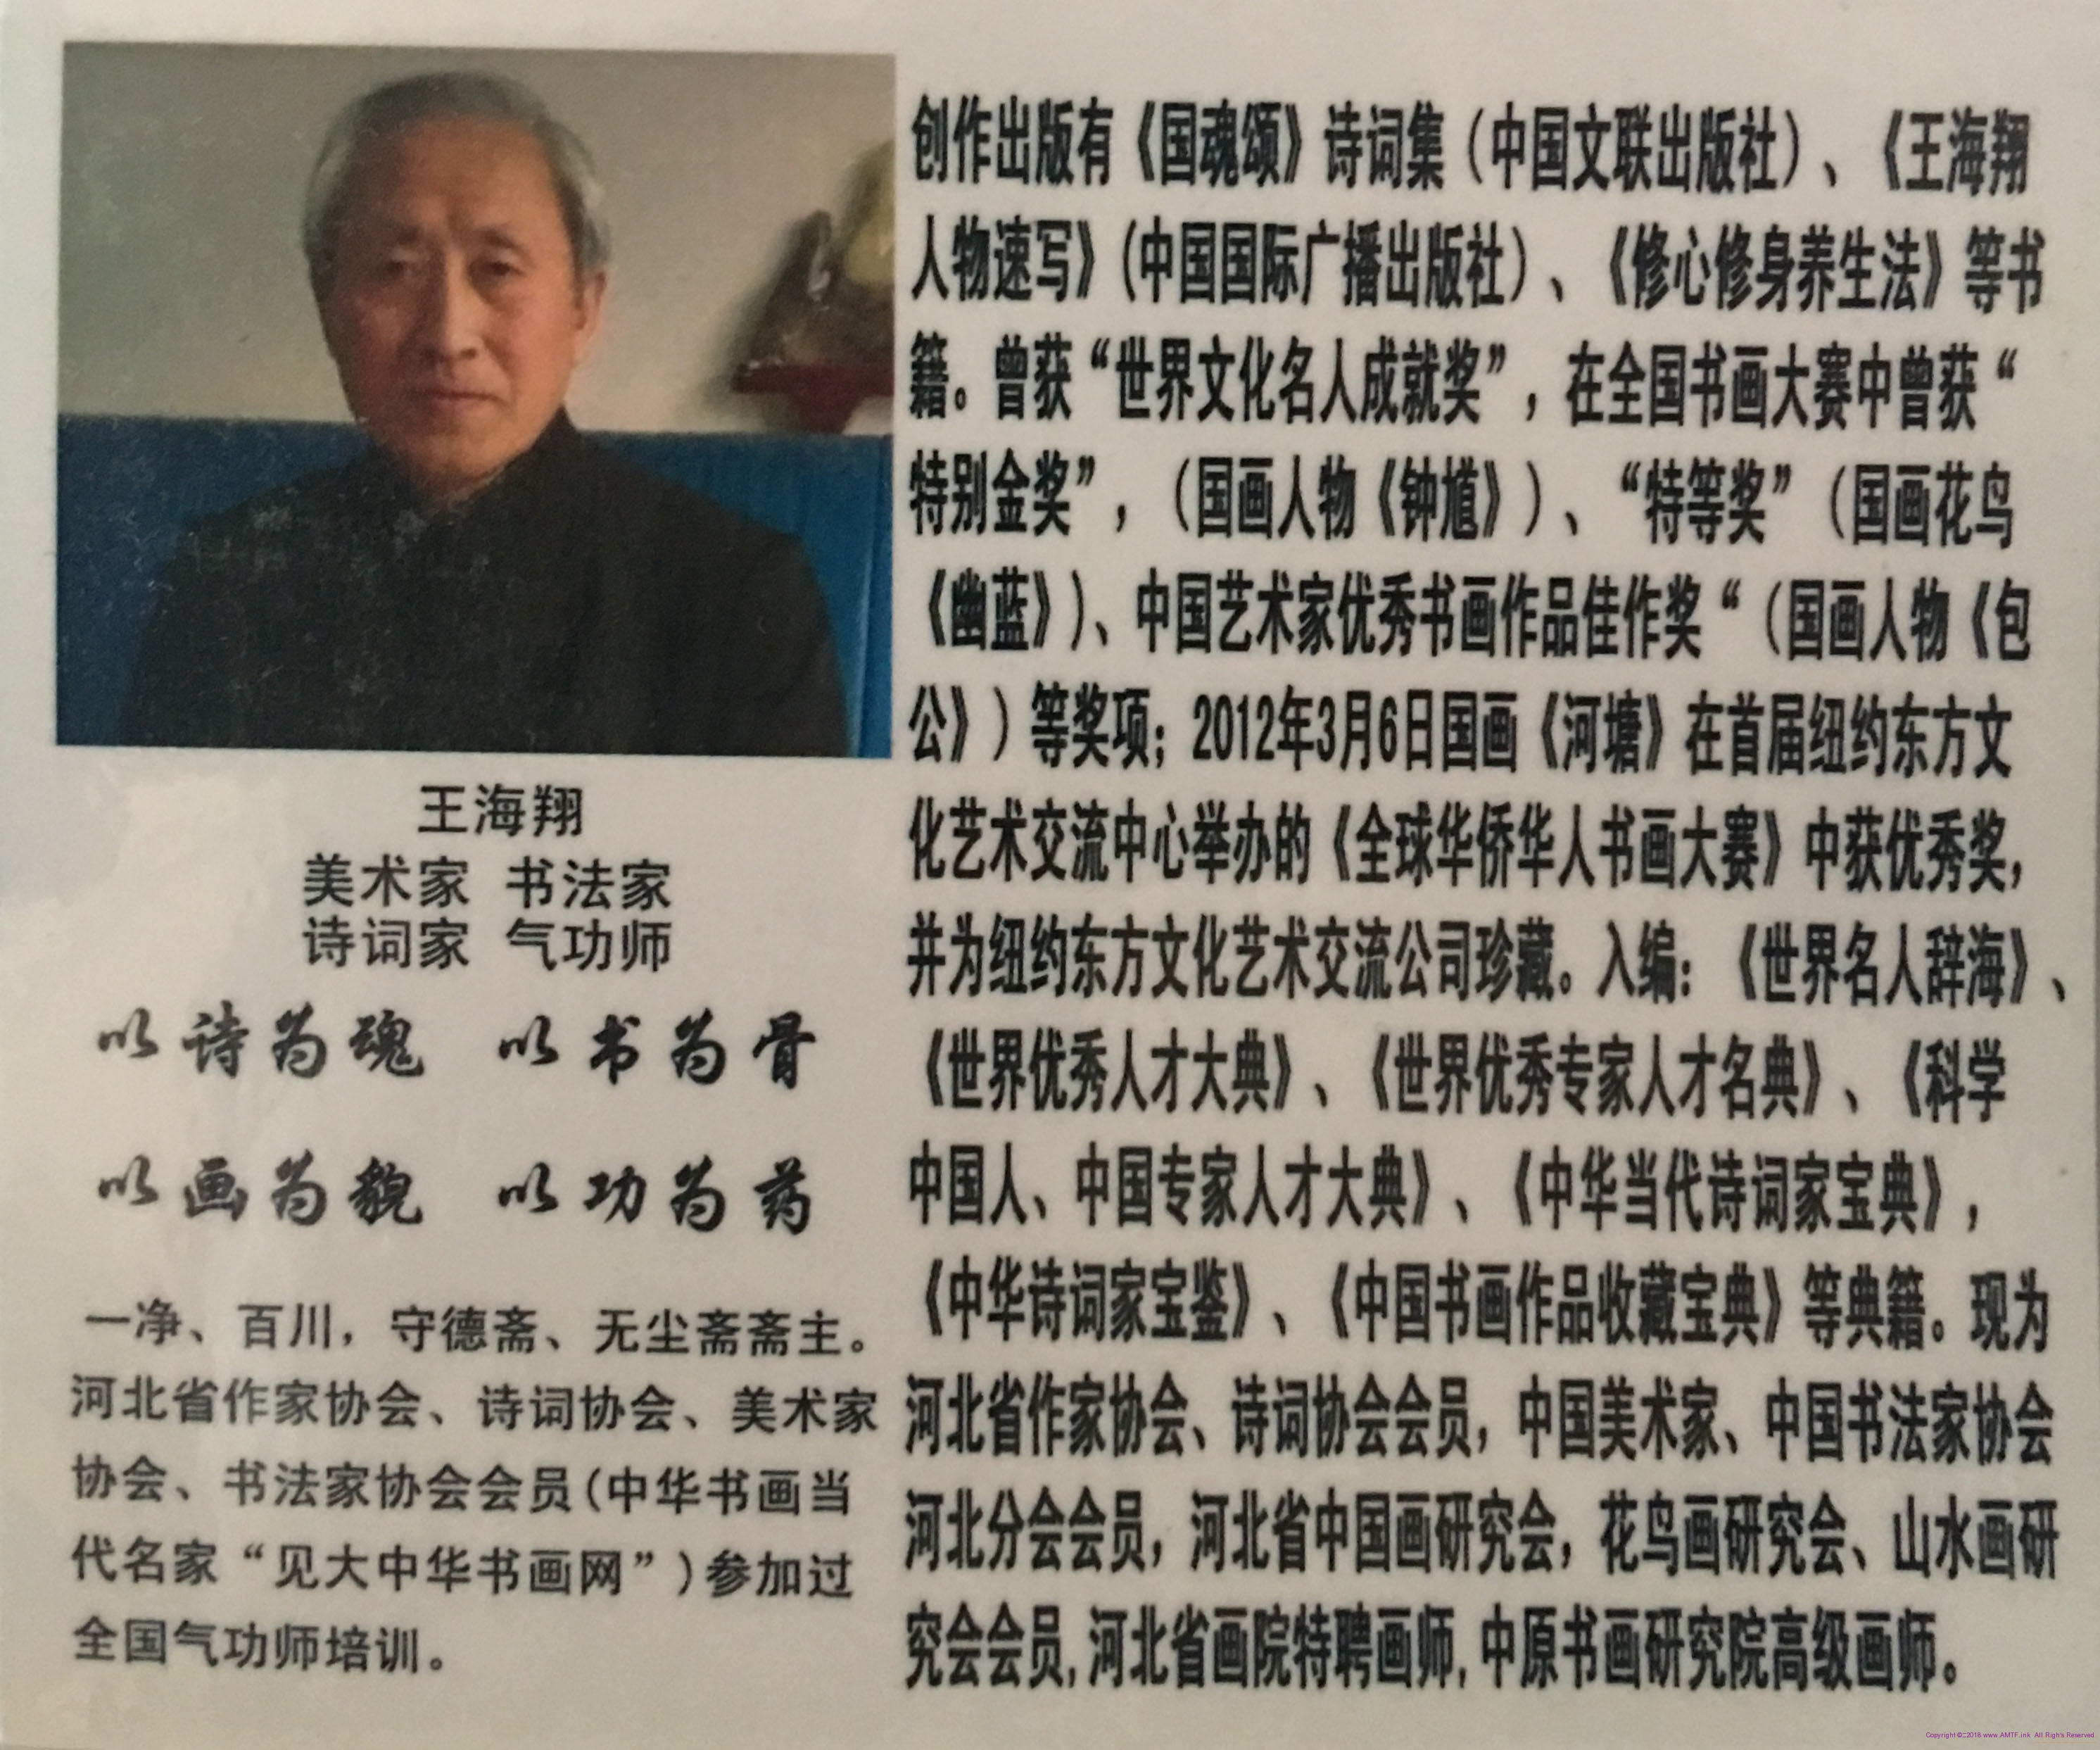 王海翔
美术家 书法家
诗词家 气功师
以诗为魂 以书为骨
以画为貌 以功为药
一净、百川，守德斋、无尘斋斋主。
河北省作家协会、诗词协会、美术家
协会、书法家协会会员(中华书画当
代名家“见大中华书画网”)参加过
全国气功师培训。
创作出版有《国魂颂》诗词集（中国文联出版社）、《王海翔
人物速写》(中国国际广播出版社）、《修心修身养生法》等书
籍。曾获“世界文化名人成就奖”，在全国书画大赛中曾获“
特别金奖”，（国画人物《钟馗》）、“特等奖”（国画花鸟
《幽蓝》)、中国艺术家优秀书画作品佳作奖“（国画人物《包
公》）等奖项；2012年3月6日国画《河塘》在首届纽约东方文
化艺术交流中心举办的《全球华侨华人书画大赛》中获优秀奖，
并为纽约东方文化艺术交流公司珍藏。入编：《世界名人辞海》、
《世界优秀人才大典》、《世界优秀专家人才名典》、《科学
中国人、中国专家人才大典》、《中华当代诗词家宝典》，
《中华诗词家宝鉴》、《中国书画作品收藏宝典》等典籍。现为
河北省作家协会、诗词协会会员，中国美术家、中国书法家协会
河北分会会员，河北省中国画研究会，花鸟画研究会、山水画研
究会会员,河北省画院特聘画师,中原书画研究院高级画师。
Copyright ©2018 www.AMTF.ink All Rights Reserved